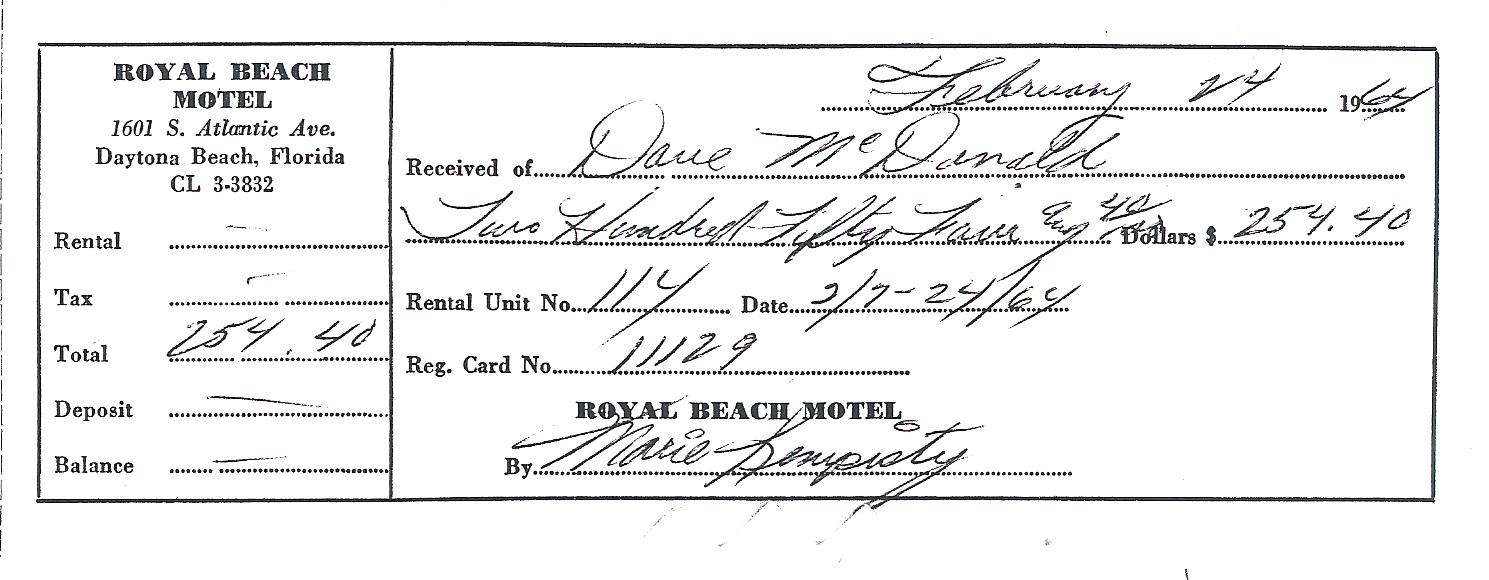 ROYAL BEACH
MOTEL
1601 S. Atlantic Ave.
Daytona Beach, Florida
CL 3-3832
Rental
Tax
Total 254.40
Deposit
Balance
February 24 1964
Received of Dave McDonald
Two Hundred Fifty Four and 40/100 Dollars $ 254.40
Rental Unit No. 114 Date 2/7-24/64
Reg. Card No. 11129
ROYAL BEACH MOTEL
By Marie Kempisty